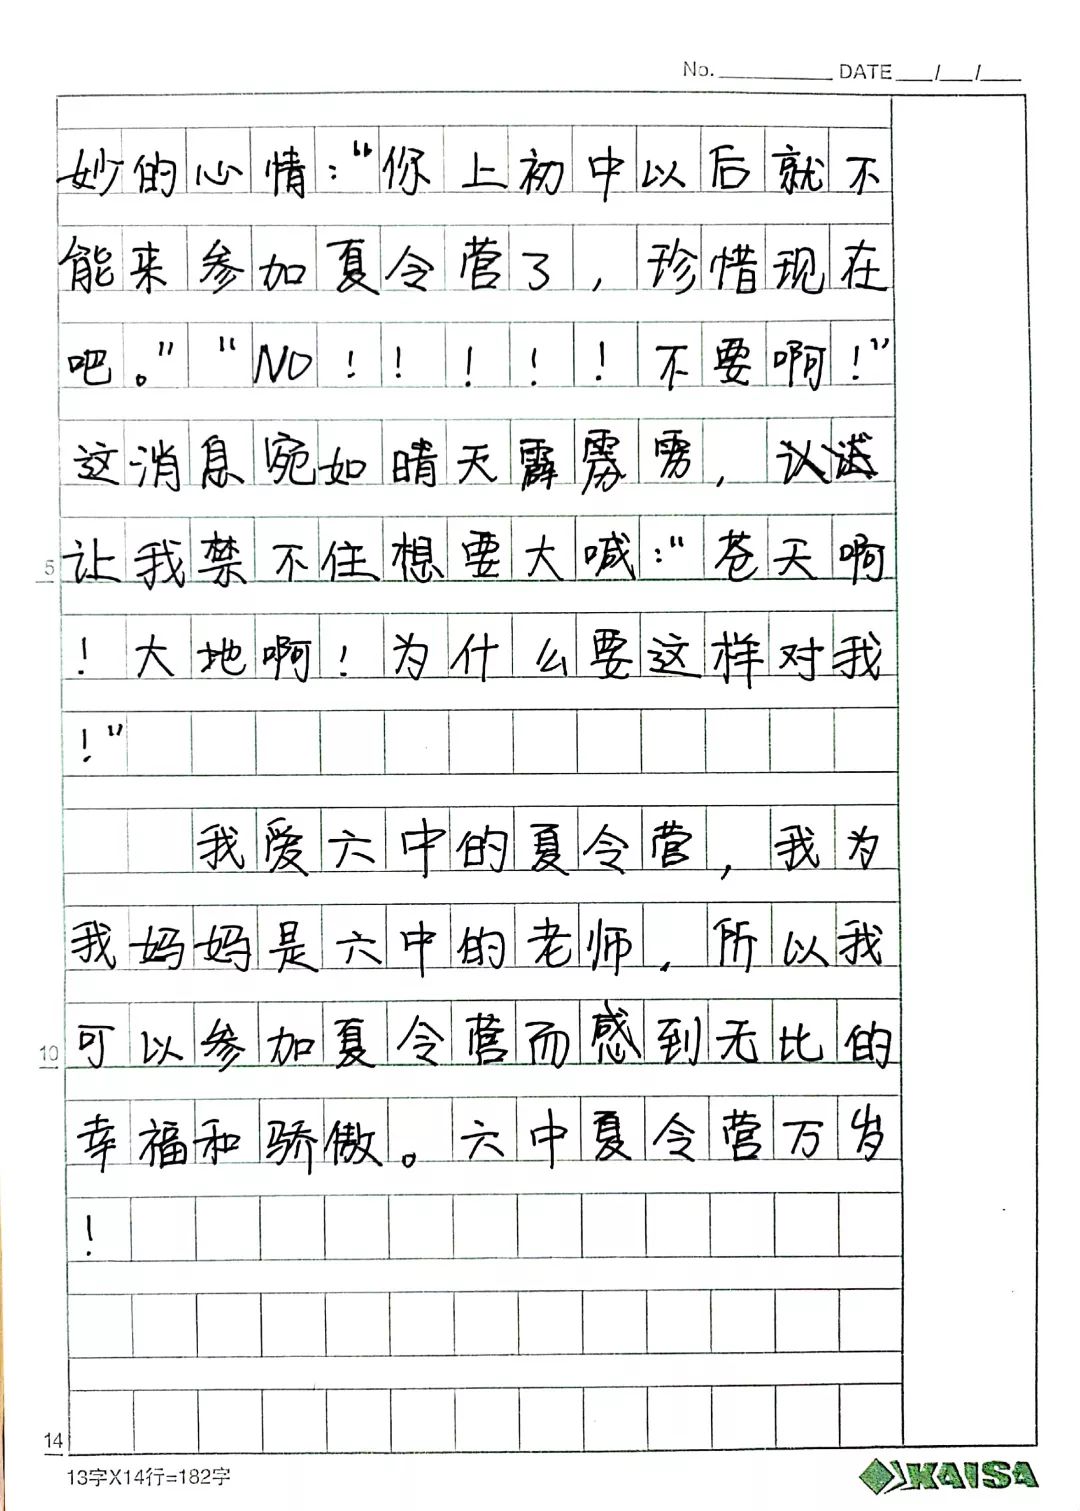 No. DATE / /
妙的心情：“你上初中以后就不
能来参加夏令营了，珍惜现在
吧。”“NO！！！！！不要啊！”
这消息宛如晴天霹雳雳，
5 让我禁不住想要大喊：“苍天啊
！大地啊！为什么要这样对我
！”
我爱六中的夏令营，我为
我妈妈是六中的老师，所以我
10 可以参加夏令营而感到无比的
幸福和骄傲。六中夏令营万岁
！
14
13字X14行=182字
KAISA